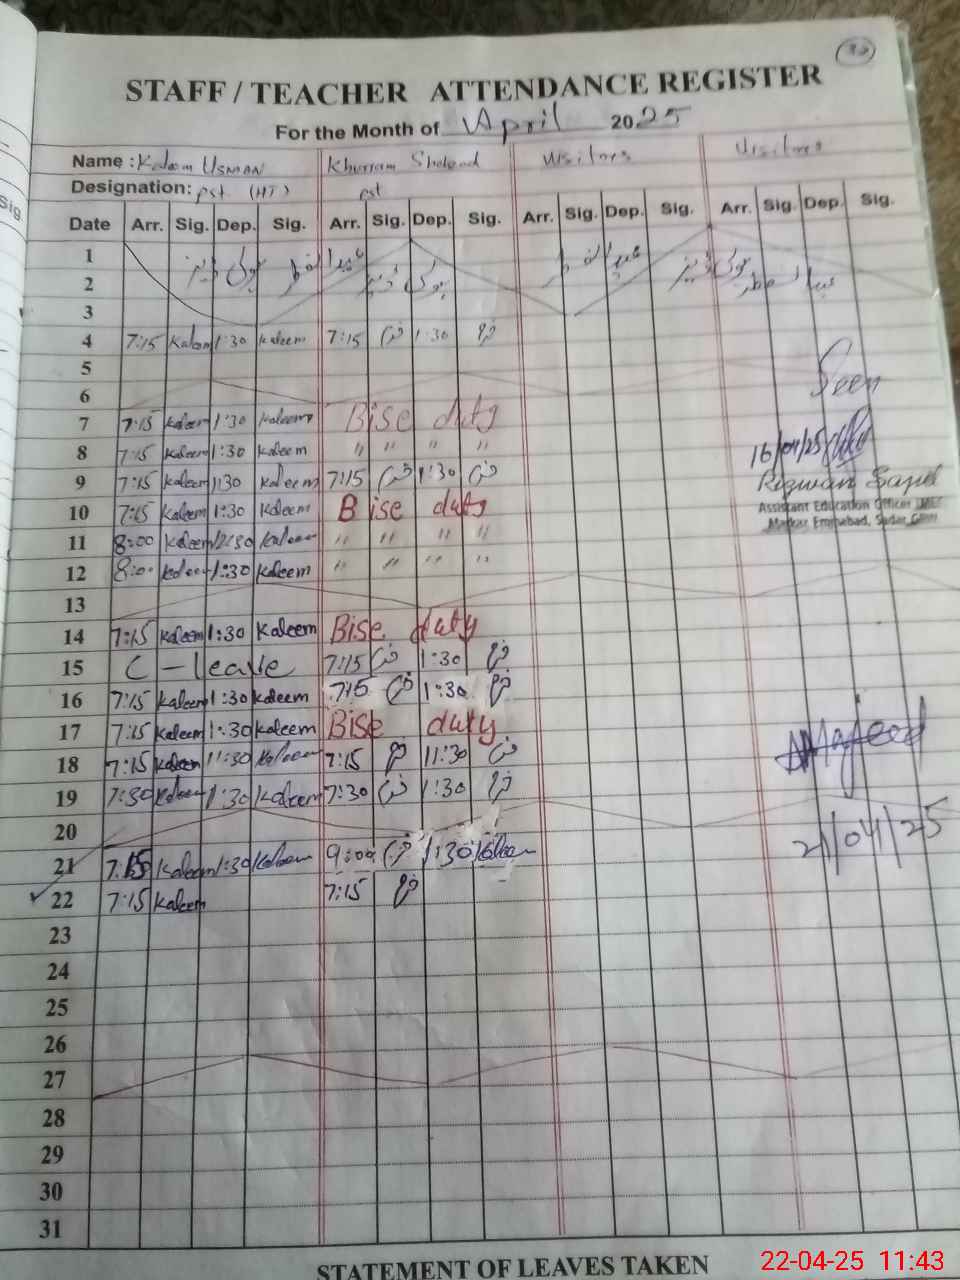 30
STAFF / TEACHER ATTENDANCE REGISTER
For the Month of April 2025
Name : Kaleem USMAN Khurram Shahzad Visitors Visitors
Designation: pst (HT) pst
Date Arr. Sig. Dep. Sig. Arr. Sig. Dep. Sig. Arr. Sig. Dep. Sig. Arr. Sig. Dep. Sig.
1 عید الفطر
2
3
4 7:15 Kaleem 1:30 kaleem 7:15 1:30
5
6 Seen
7 7:15 kaleem 1:30 kaleem Bise duty
8 7:15 kaleem 1:30 kaleem " " " " 16/04/25
9 7:15 kaleem 1:30 kaleem 7:15 1:30 Rizwan Sajid
10 7:15 kaleem 1:30 kaleem Bise duty Assistant Education Officer
11 8:00 kaleem 12:30 kaleem " " " " Markaz Emnabad, Sadar,
12 8:00 kaleem 1:30 kaleem " " " "
13
14 7:15 kaleem 1:30 kaleem Bise duty
15 C - leave 7:15 1:30
16 7:15 kaleem 1:30 kaleem 7:15 1:30
17 7:15 kaleem 1:30 kaleem Bise duty
18 7:15 kaleem 11:30 kaleem 7:15 11:30 Majeed
19 7:30 kaleem 1:30 kaleem 7:30 1:30
20 21/04/25
21 7:15 kaleem 1:30 kaleem 9:00 1:30
22 7:15 kaleem 7:15
23
24
25
26
27
28
29
30
31
STATEMENT OF LEAVES TAKEN
22-04-25 11:43